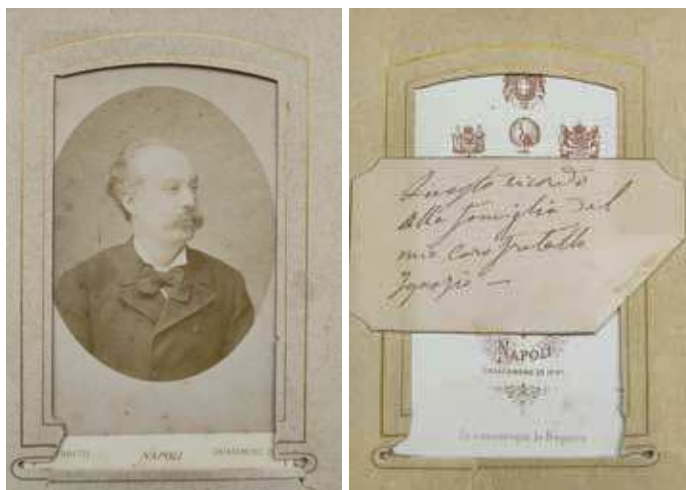 NAPOLI
Questo ricordo
Alla famiglia del
mio caro fratello
Ignazio —
NAPOLI
Si conservano le Negative